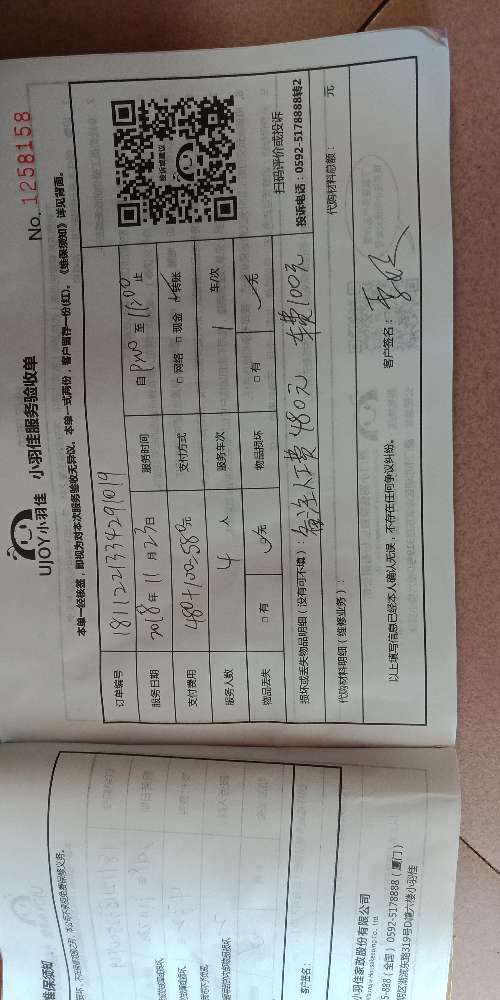 UJOY小羽佳 小羽佳服务验收单
No. 1258158
本单一经核签，即视为对本次服务验收无异议。本单一式两份，客户留存一份(红)。《维保须知》详见背面。
订单编号 181122133429 1019
服务日期 2018年 11月 23日 服务时间 自 至 11:00 止
支付费用 480+100=580元 支付方式 □ 网络 □ 现金 转账
服务人数 4 人 服务车次 1 车/次
物品丢失 □ 有 无 物品损坏 □ 有 无
投诉或建议
扫码评价或投诉
投诉电话：0592-5178888转2
损坏或丢失物品明细（没有可不填）：备注人工费480元 车费100元
代购材料明细（维修业务）： 代购材料总额： 元
以上填写信息已经本人确认无误，不存在任何争议纠纷。 客户签名：
维保须知
客户签名：
小羽佳家政股份有限公司
5-888（全国） 0592-5178888（厦门）